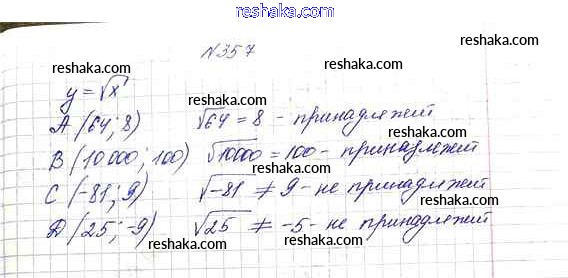 reshaka.com
N357
reshaka.com reshaka.com
reshaka.com
y = √x reshaka.com
A (64; 8) √64 = 8 - принадлежит
reshaka.com reshaka.com
B (10 000; 100) √10000 = 100 - принадлежит
reshaka.com
C (-81; 9) √-81 ≠ 9 - не принадлежит
reshaka.com reshaka.com
D (25; -9) √25 ≠ -5 - не принадлежит
reshaka.com reshaka.com